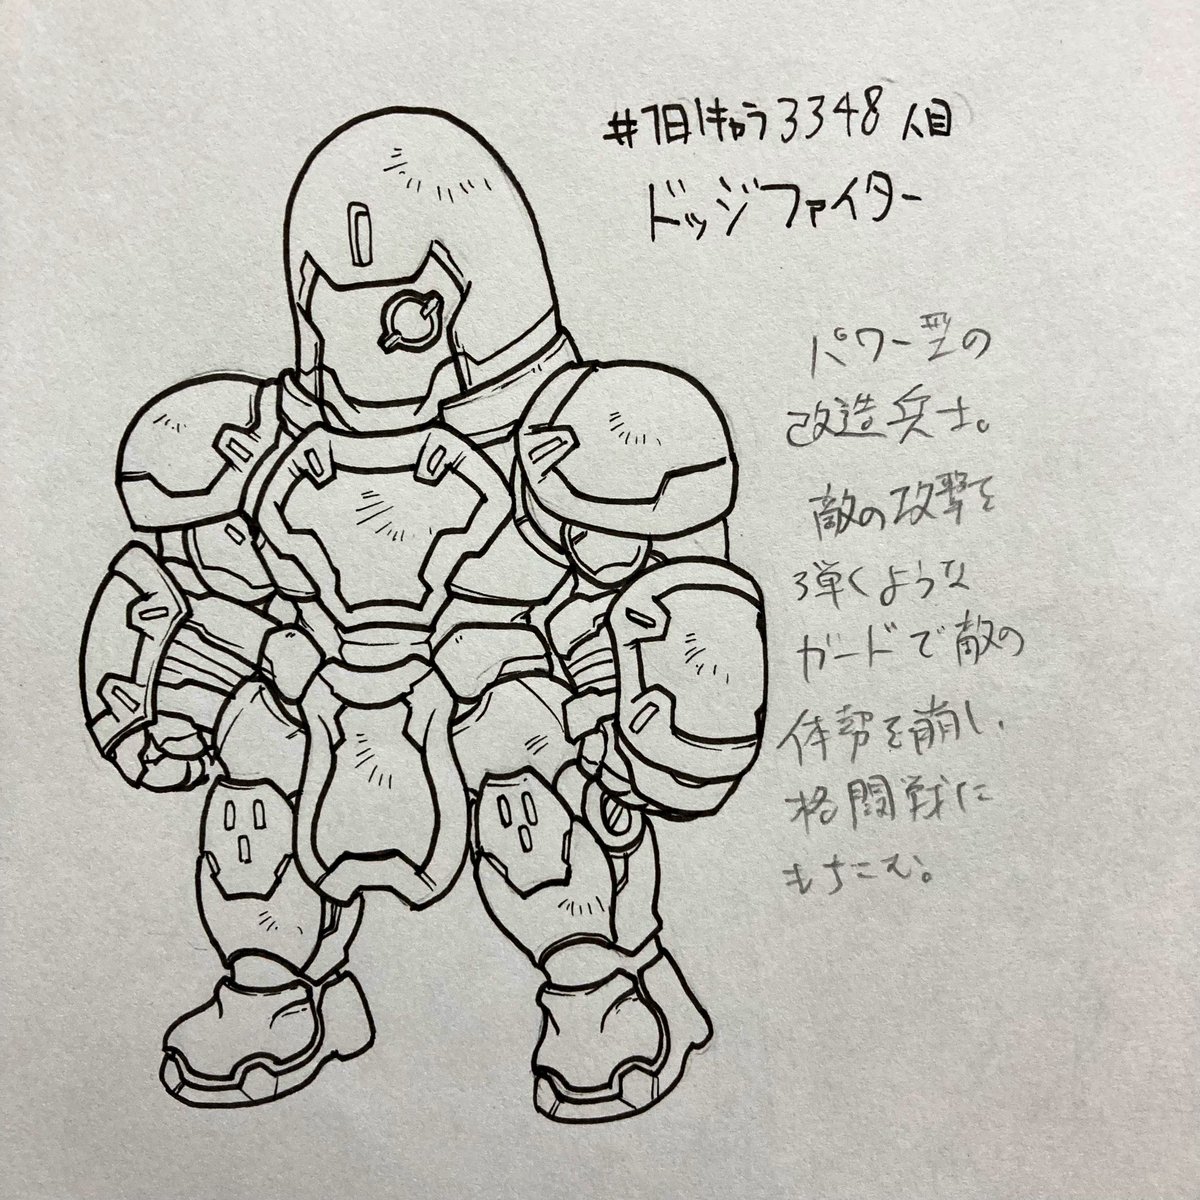 #1日1きゃら3348人目
ドッジファイター
パワー型の
改造兵士。
敵の攻撃を
弾くような
ガードで敵の
体勢を崩し、
格闘戦に
もちこむ。